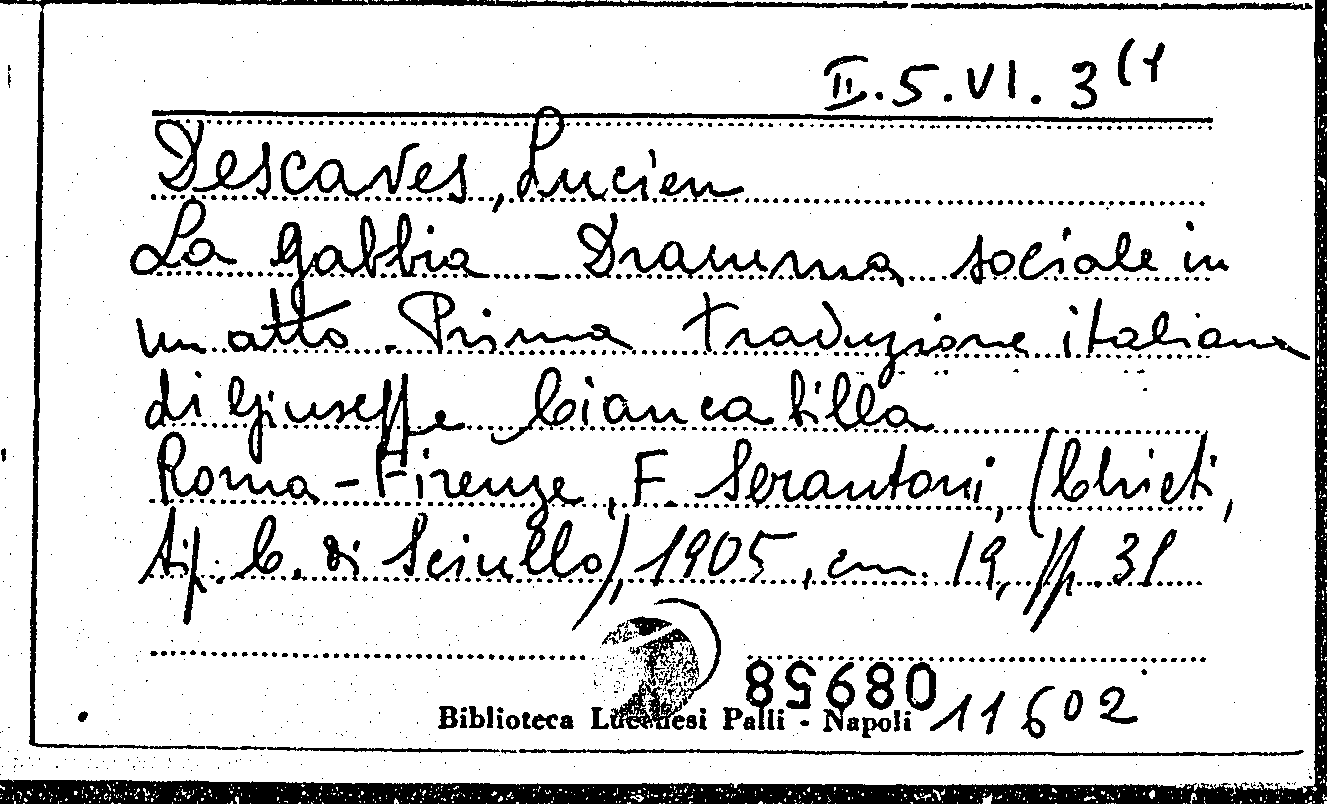 II.5.VI.3(1
Descaves, Lucien
La gabbia - Dramma sociale in
un atto - Prima traduzione italiana
di Giuseppe Ciancabilla
Roma - Firenze, F. Serantoni, (Chieti,
tip. C. di Sciullo), 1905, cm. 19, pp. 31
08958
Biblioteca Lucchesi Palli - Napoli 11602